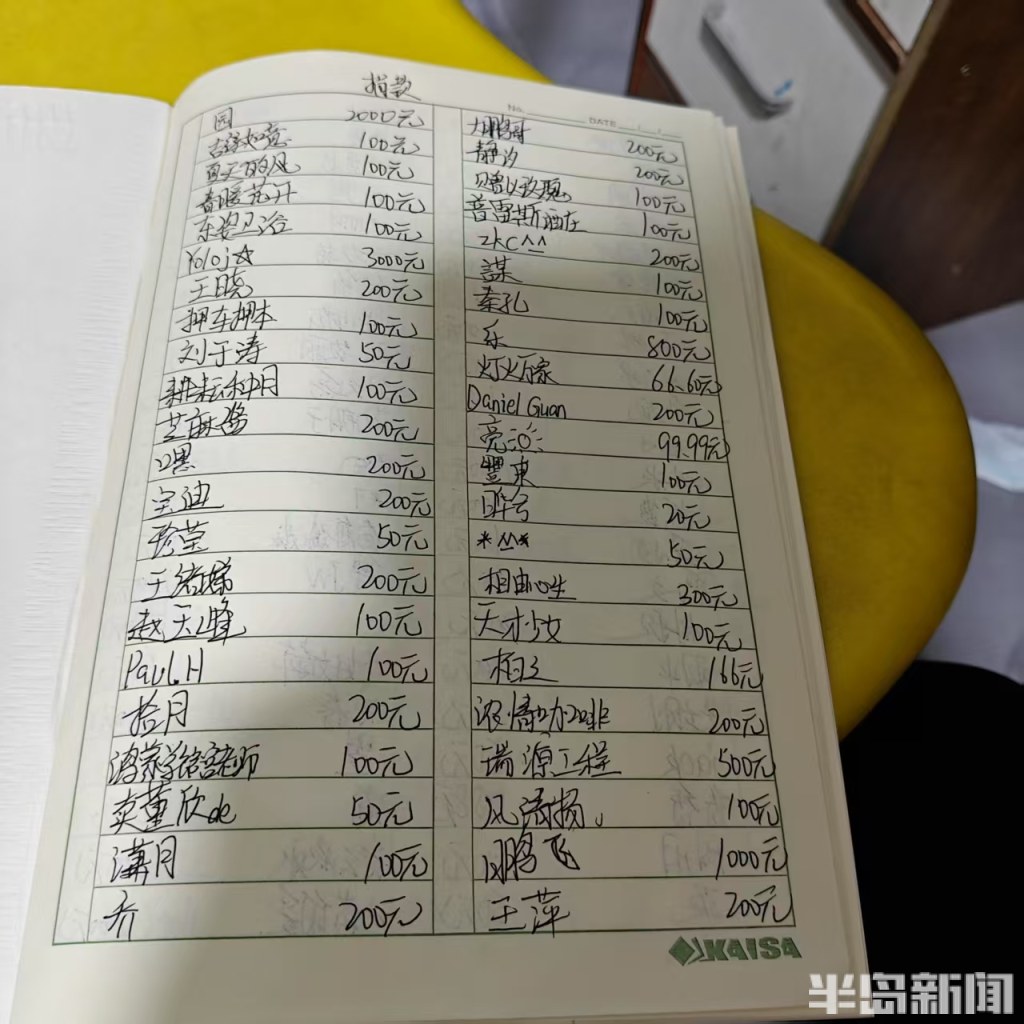 捐款
园 2000元
吉祥如意 100元
夏天的风 100元
春暖花开 100元
100元
Yoloj☆ 3000元
王晓 200元
押车押本 100元
刘于涛 50元
耕耘种月 100元
芝麻酱 200元
口恩 200元
宝迪 200元
珍莹 50元
王绪娣 200元
赵天峰 100元
Paul.H 100元
拾月 200元
100元
卖董欣de 50元
溝月 100元
乔 200元
NO.
DATE / /
大鹏哥 200元
静汐 200元
赠以玫瑰 100元
普雷斯酒庄 100元
ZKC^^ 200元
謀 100元
秦孔 100元
乐 800元
灯火万家 66.60元
Daniel Guan 200元
亮 99.99元
豐東 100元
昨兮 20元
*^^* 50元
相由心生 300元
天才少女 100元
166元
浓情咖啡 200元
瑞源工程 500元
100元
鹏飞 1000元
王萍 200元
KAISA
半岛新闻